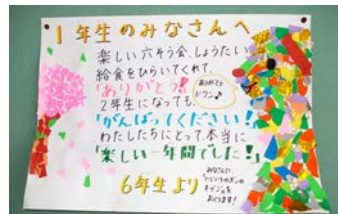 1年生のみなさんへ
楽しい六そう会、しょうたい
給食をひらいてくれて、
「ありがとう!」
ありがとう
2年生になっても、
「がんばってください!」
わたしたちにとって、本当に
「楽しい一年間でした!」
6年生より
みなさんに、
おくります!